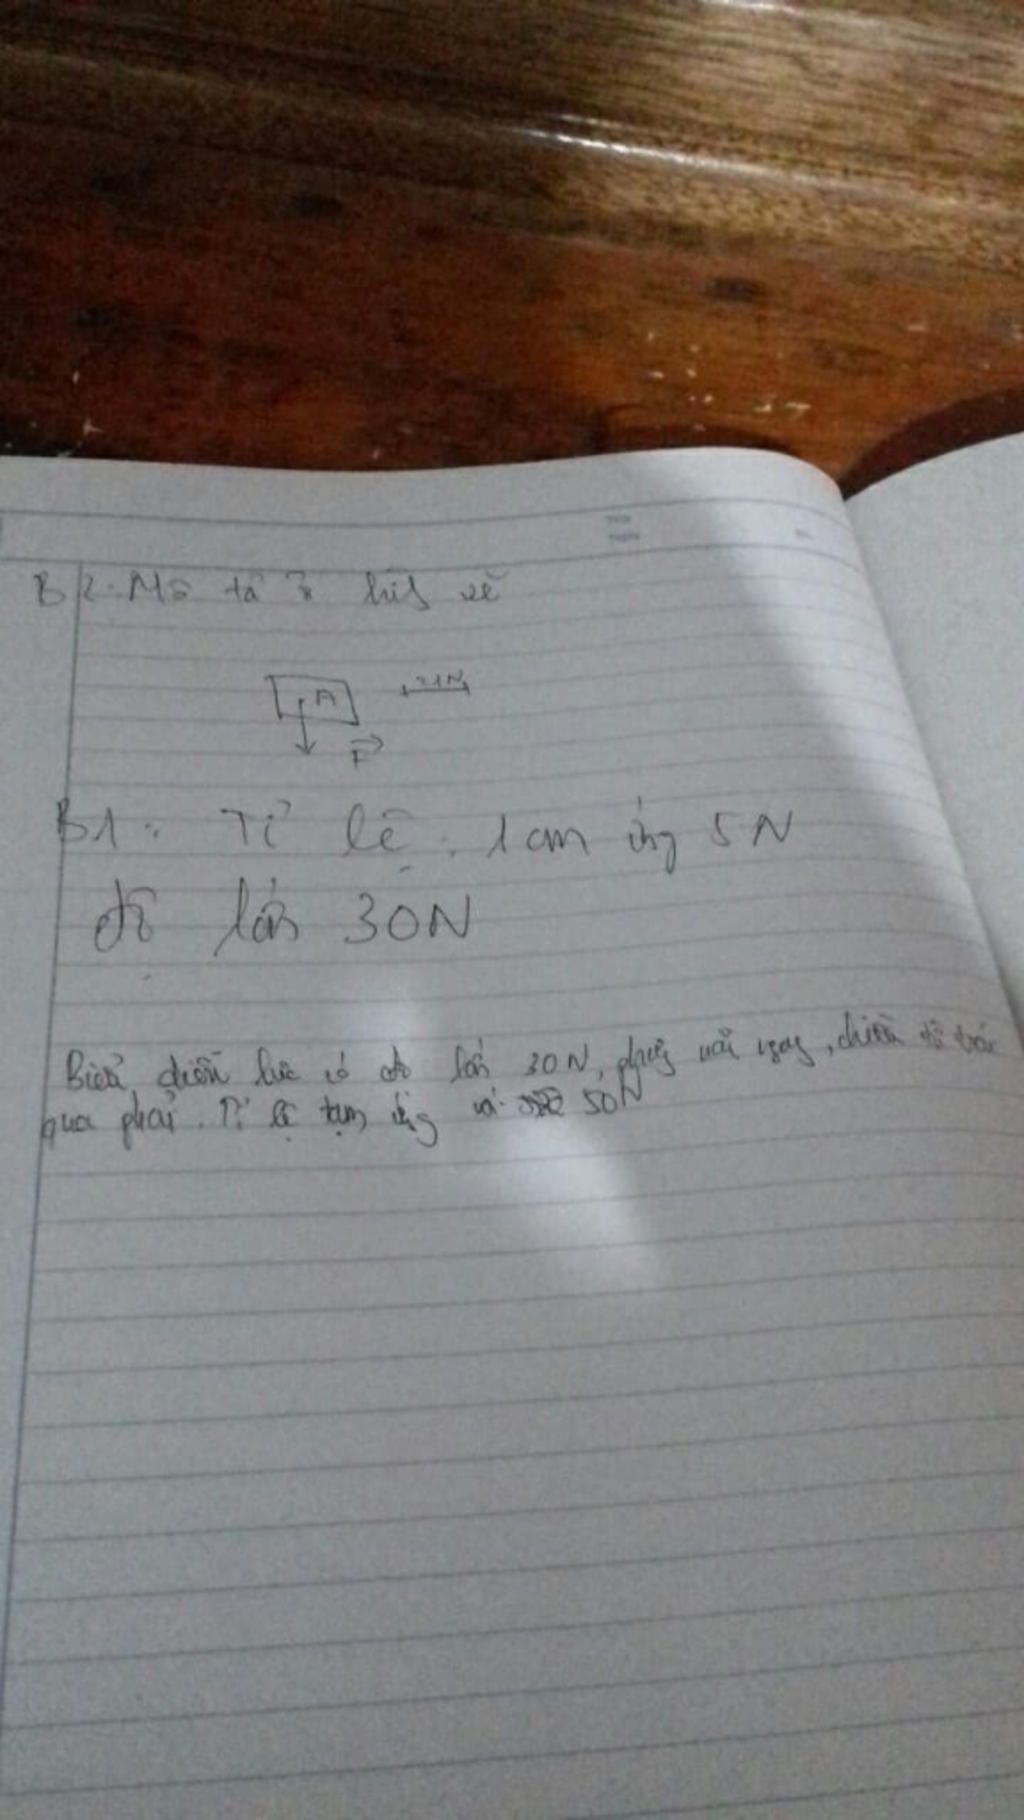 B2. Mô tả ở hình vẽ
A
F
B1: Tỉ lệ: 1 cm ứng 5N
độ lớn 30N
Biểu diễn lực có độ lớn 30N, phương nằm ngang, chiều từ trái
qua phải. Tỉ lệ 1cm ứng với 50N